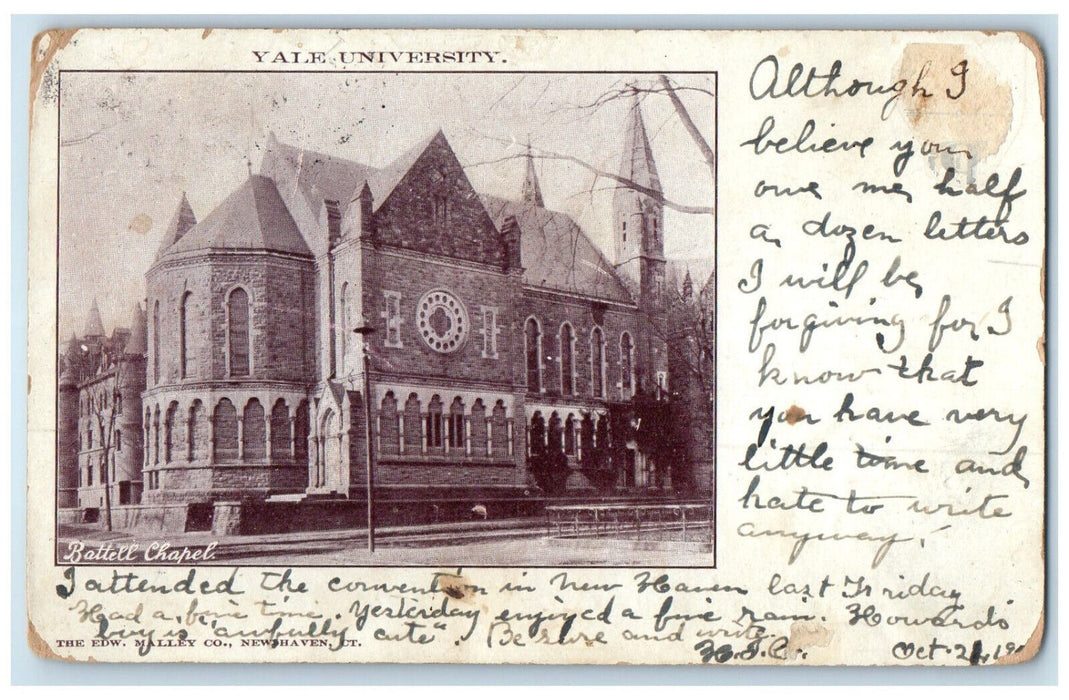 YALE UNIVERSITY.
Although I
believe you
owe me half
a dozen letters
I will be
forgiving for I
know that
you have very
little time and
hate to write
anyway.
Battell Chapel.
I attended the convention in New Haven last Friday
Had a fine time. Yesterday enjoyed a fine rain. Howard's
boy is "awfully cute". Be sure and write
THE EDW. MALLEY CO., NEW HAVEN, CT.
Oct.